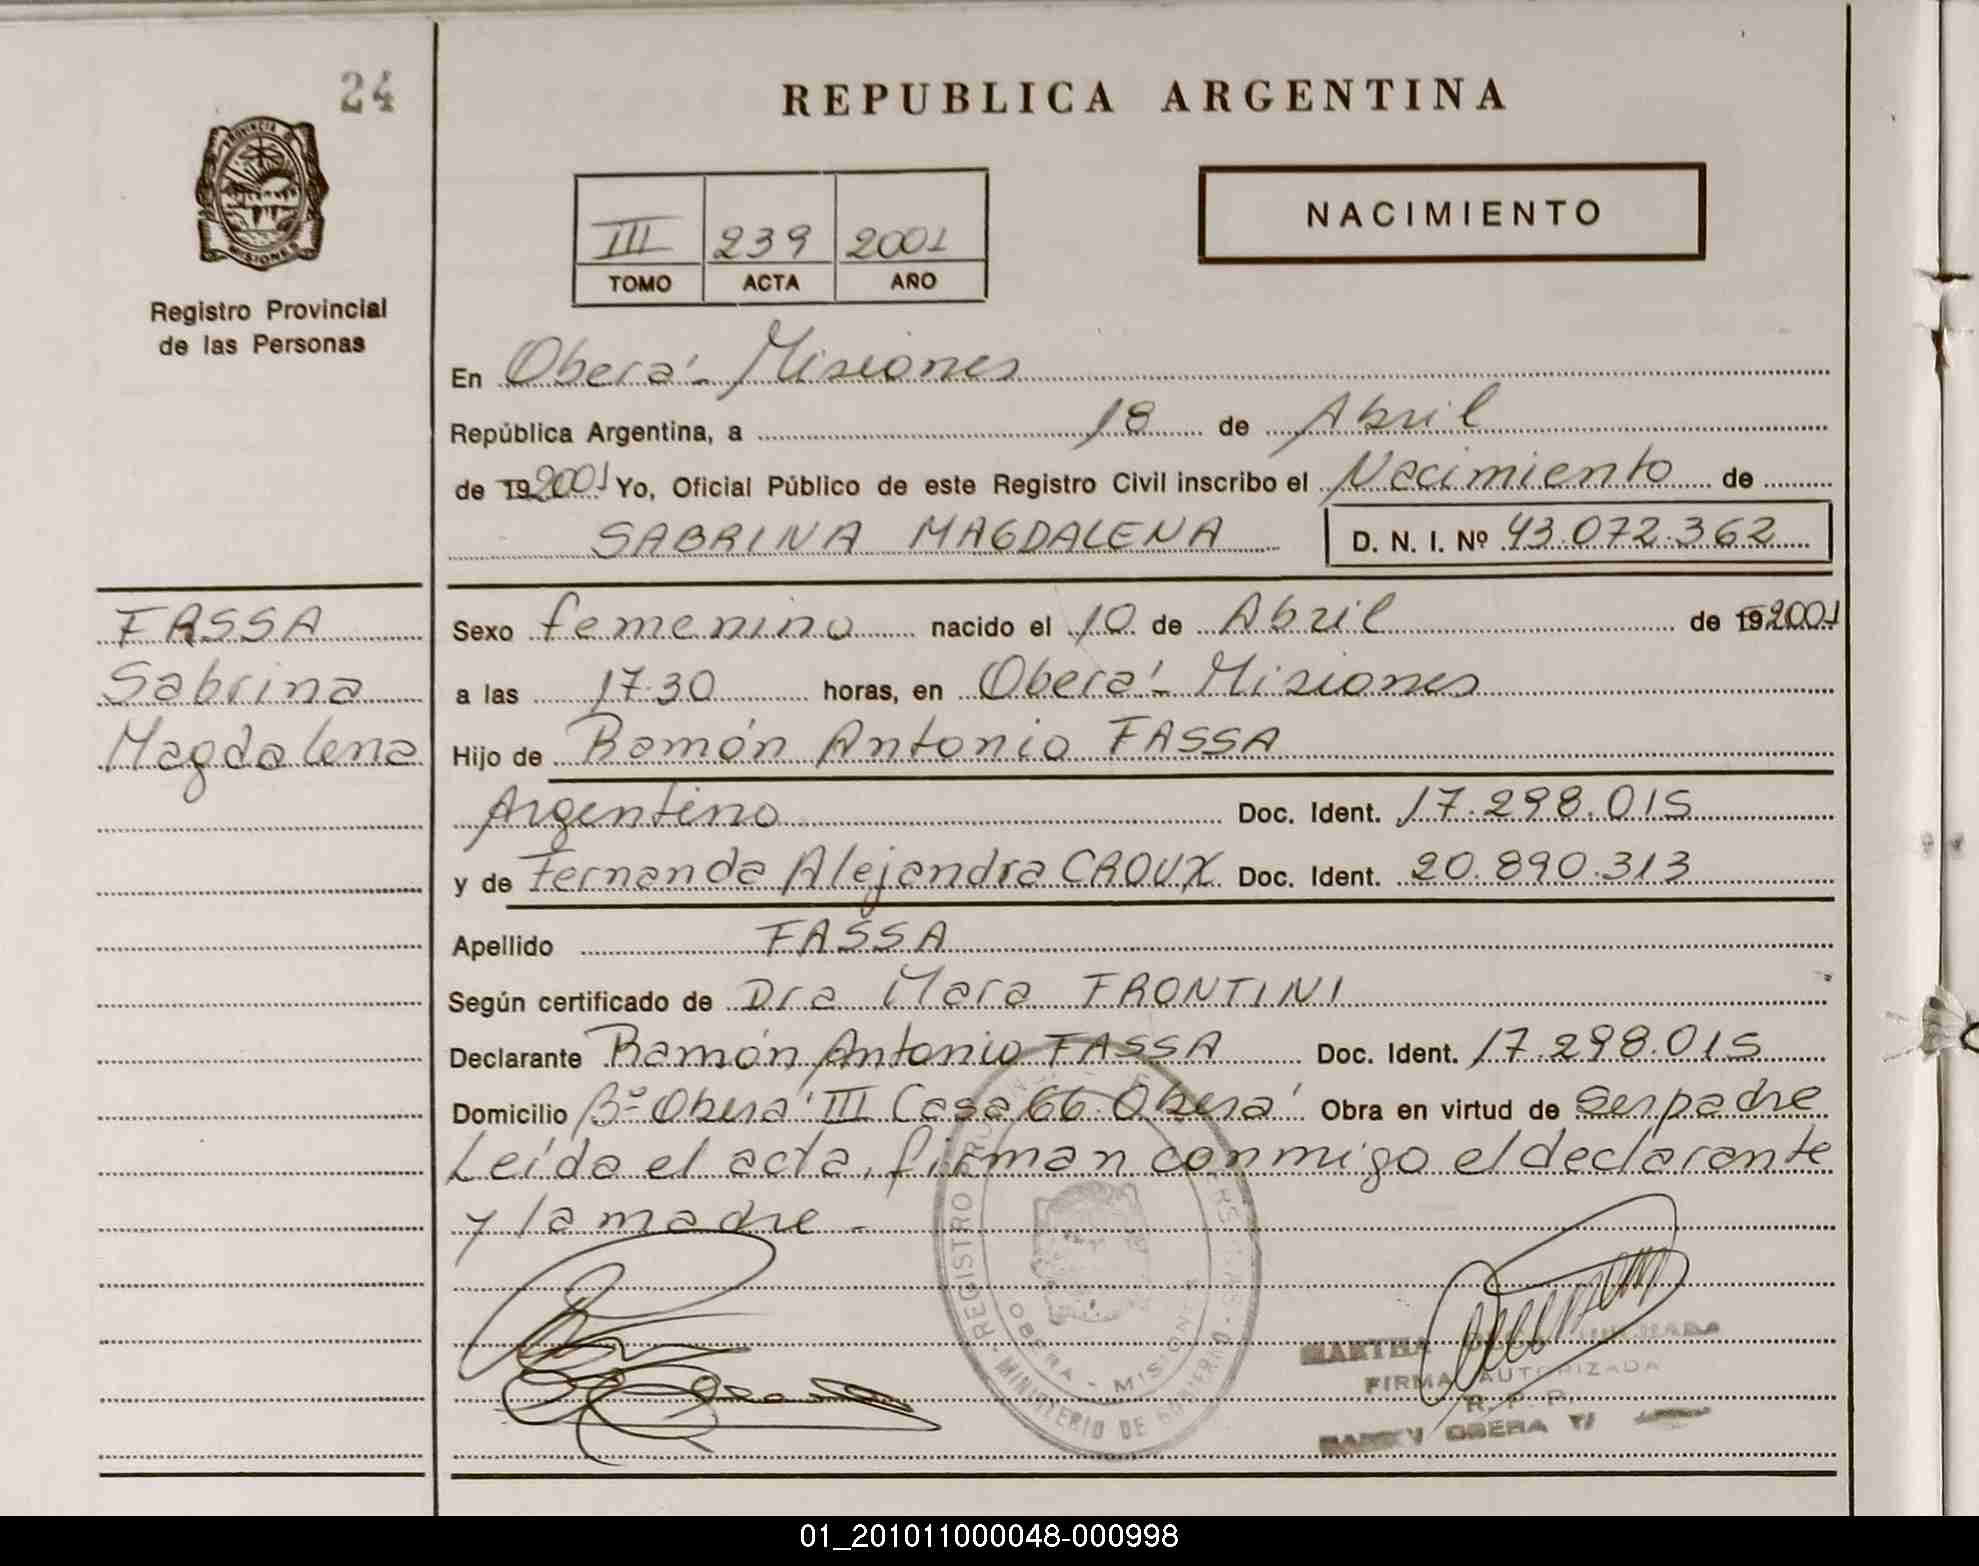 24
PROVINCIA DE
MISIONES
Registro Provincial
de las Personas
REPUBLICA ARGENTINA
III 239 2001
TOMO ACTA AÑO
NACIMIENTO
En Oberá - Misiones
República Argentina, a 18 de Abril
de 192001 Yo, Oficial Público de este Registro Civil inscribo el Nacimiento de
SABRINA MAGDALENA D. N. I. Nº 43.072.362
FASSA
Sabrina
Magdalena
Sexo femenino nacido el 10 de Abril de 192001
a las 17.30 horas, en Oberá - Misiones
Hijo de Ramón Antonio FASSA
Argentino Doc. Ident. 17.298.015
y de Fernanda Alejandra CROUX Doc. Ident. 20.890.313
Apellido FASSA
Según certificado de Dra Mara FRONTINI
Declarante Ramón Antonio FASSA Doc. Ident. 17.298.015
Domicilio Bº Oberá III Casa 66. Oberá Obra en virtud de ser padre
Leída el acta, firman conmigo el declarante
y la madre -
REGISTRO
OBERA - MISIONES
MINISTERIO DE GOBIERNO
MARTHA
FIRMA AUTORIZADA
R. P. P.
OBERA
01_201011000048-000998